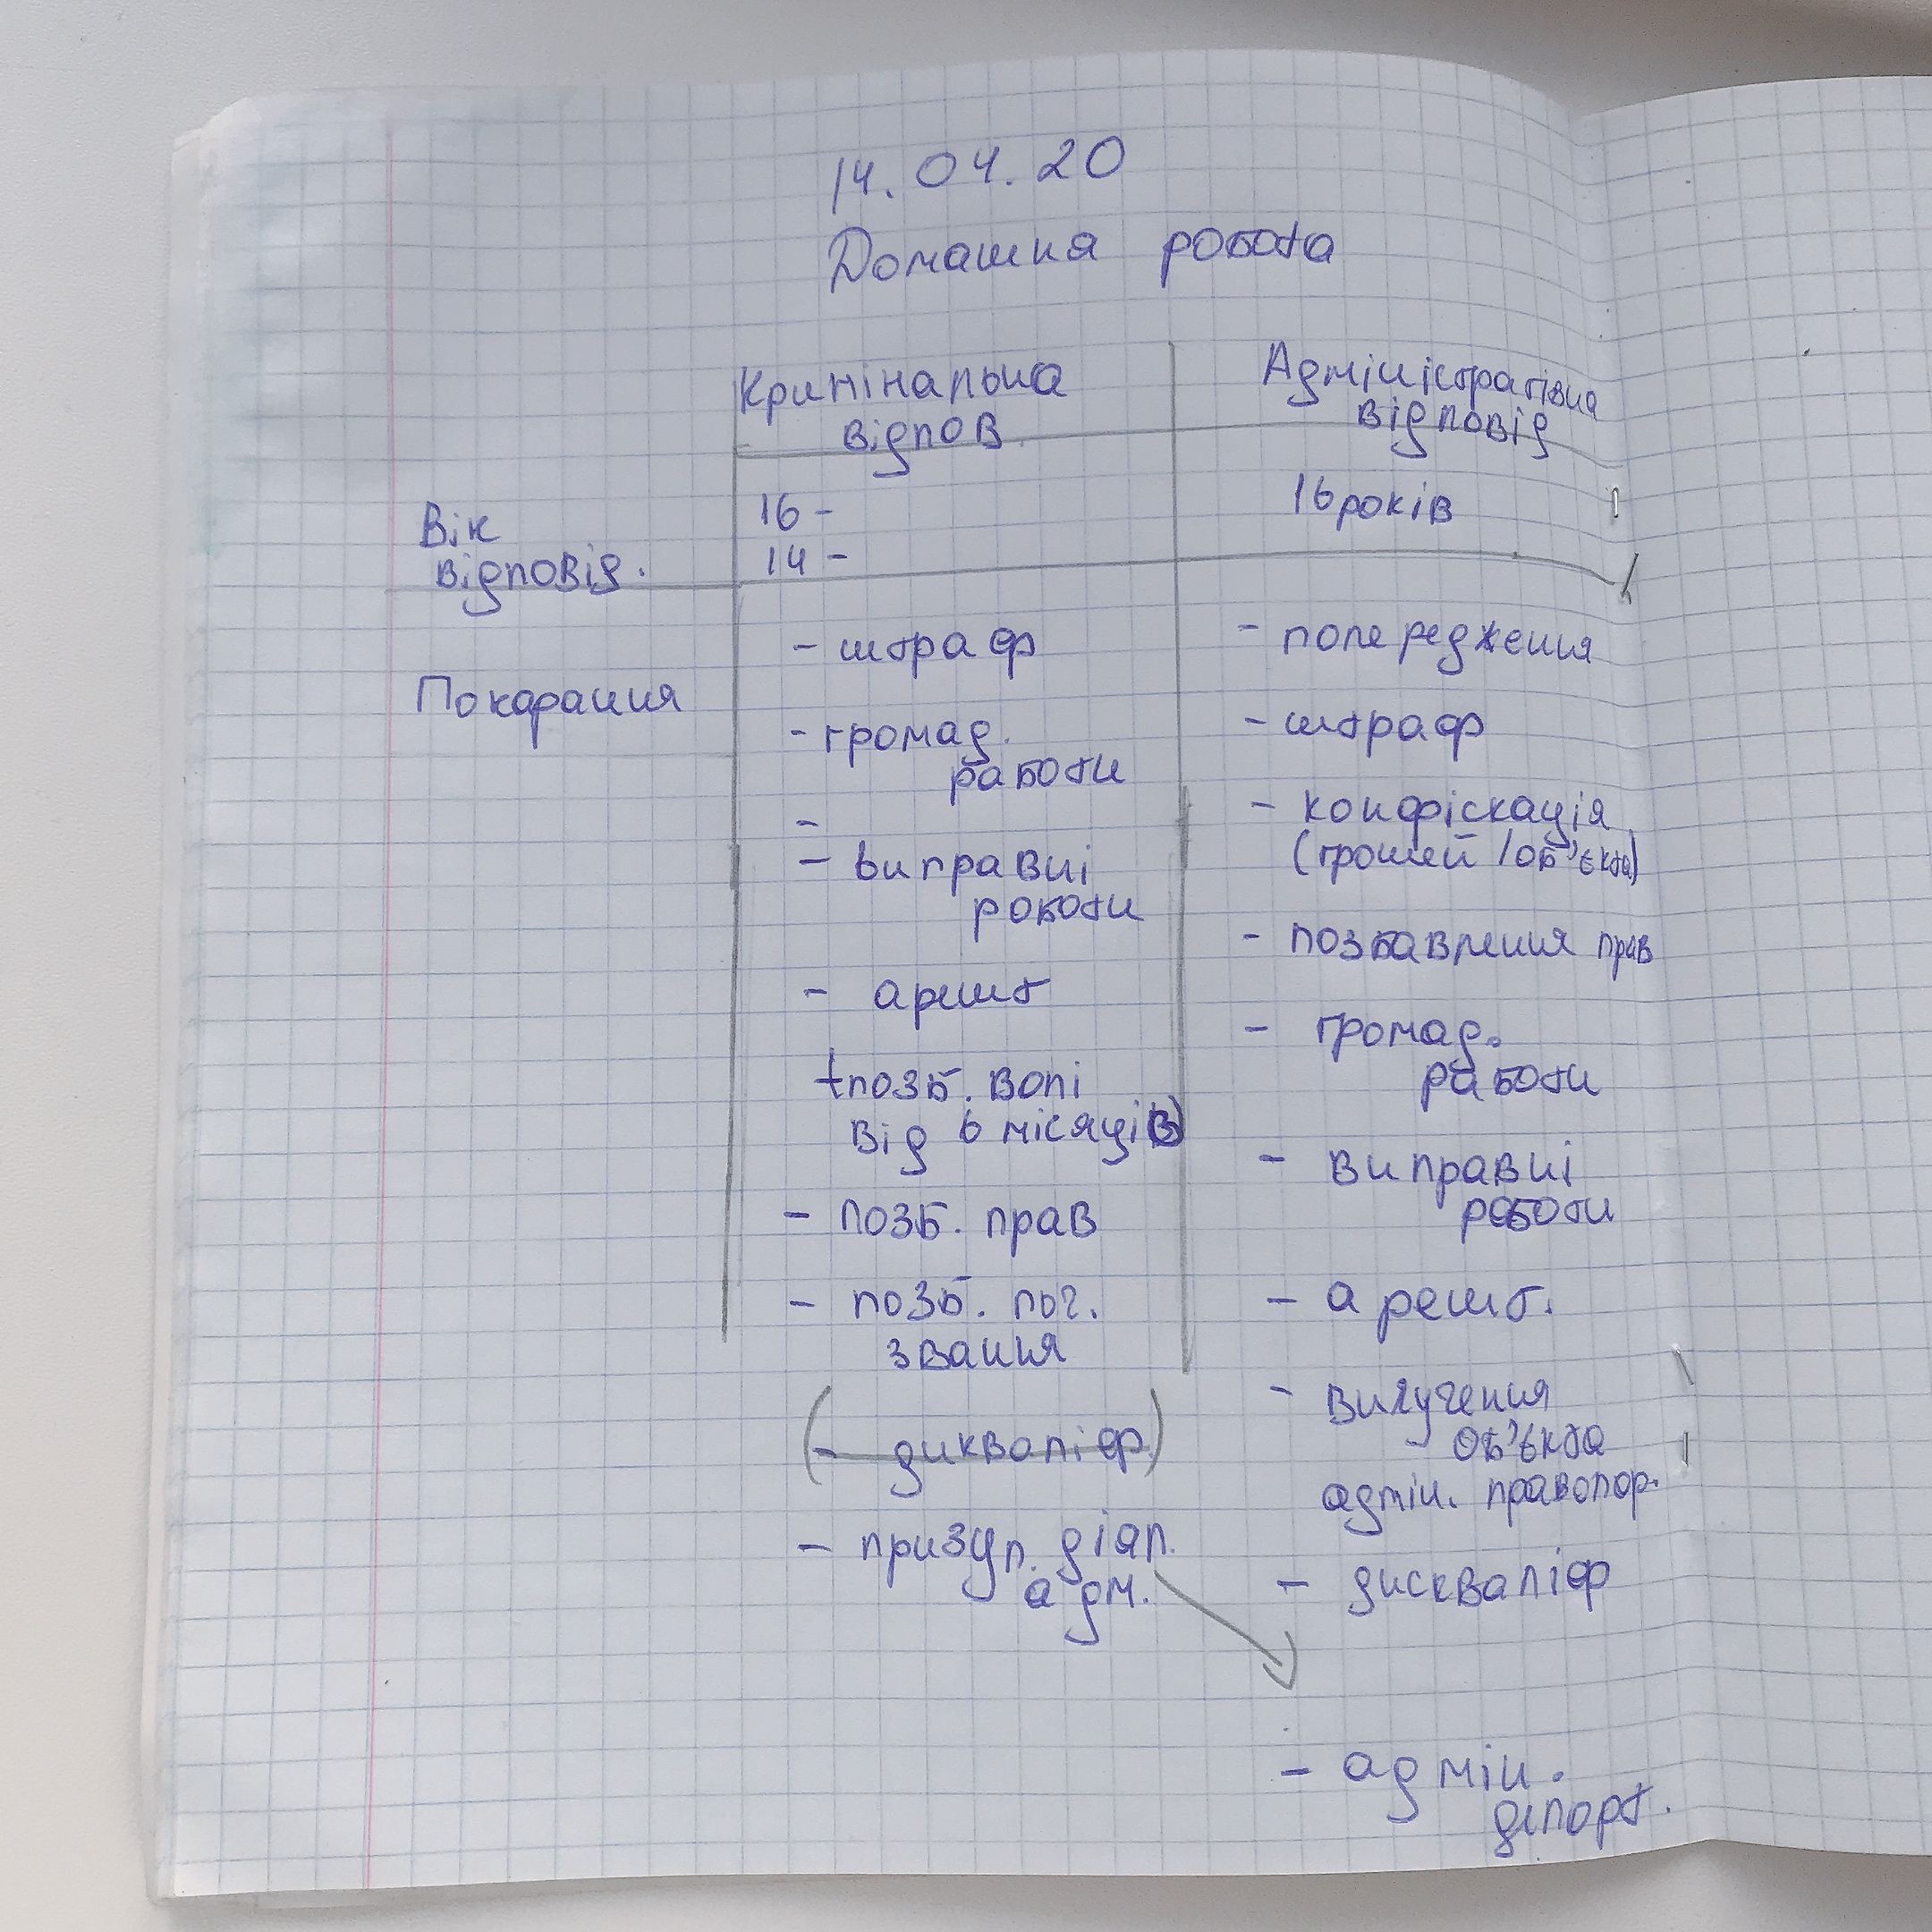 14.04.20
Домашня робота
Кримінальна
відпов
Адміністратівна
відповід
Вік
відповід.
16 -
14 -
16 років
Покарання
- штраф
- громад.
работи
-
- виправні
роботи
- арешт
+позб. волі
від 6 місяців
- позб. прав
- позб. поч.
звання
(- дикваліф)
- призуп. діял.
адм.
- попередження
- штраф
- конфіскація
(грошей / об'єкта)
- позбавлення прав
- громад.
работи
- виправні
работи
- арешт.
- вилучення
об'єкта
адмін. правопор.
- дискваліф
- адмін.
депорт.